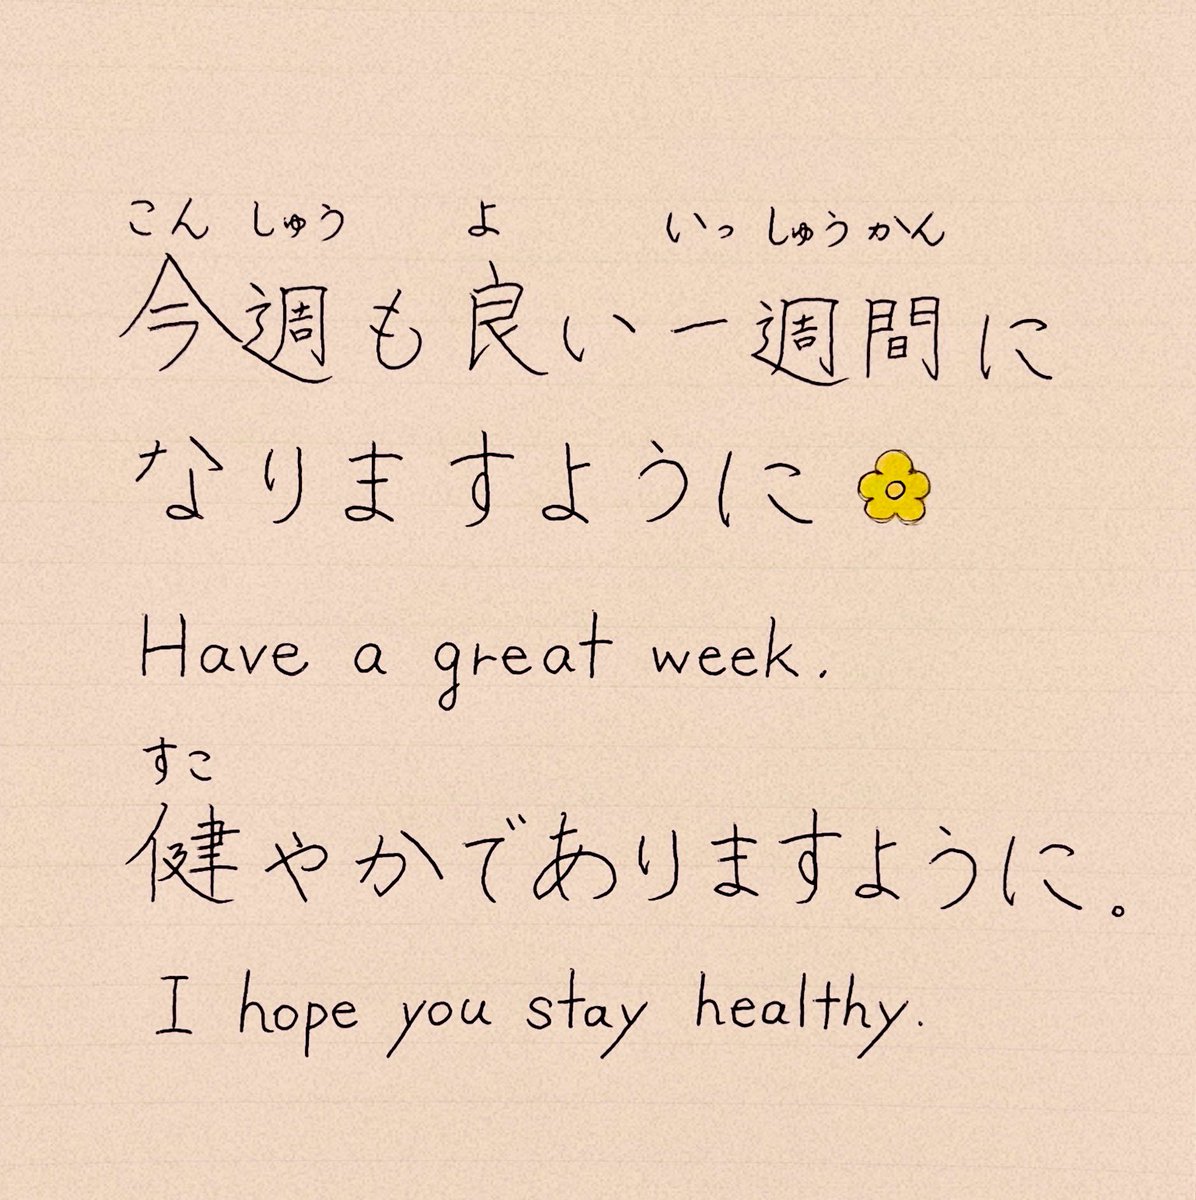 こんしゅう よ いっしゅうかん
今週も良い一週間に
なりますように
Have a great week.
すこ
健やかでありますように。
I hope you stay healthy.